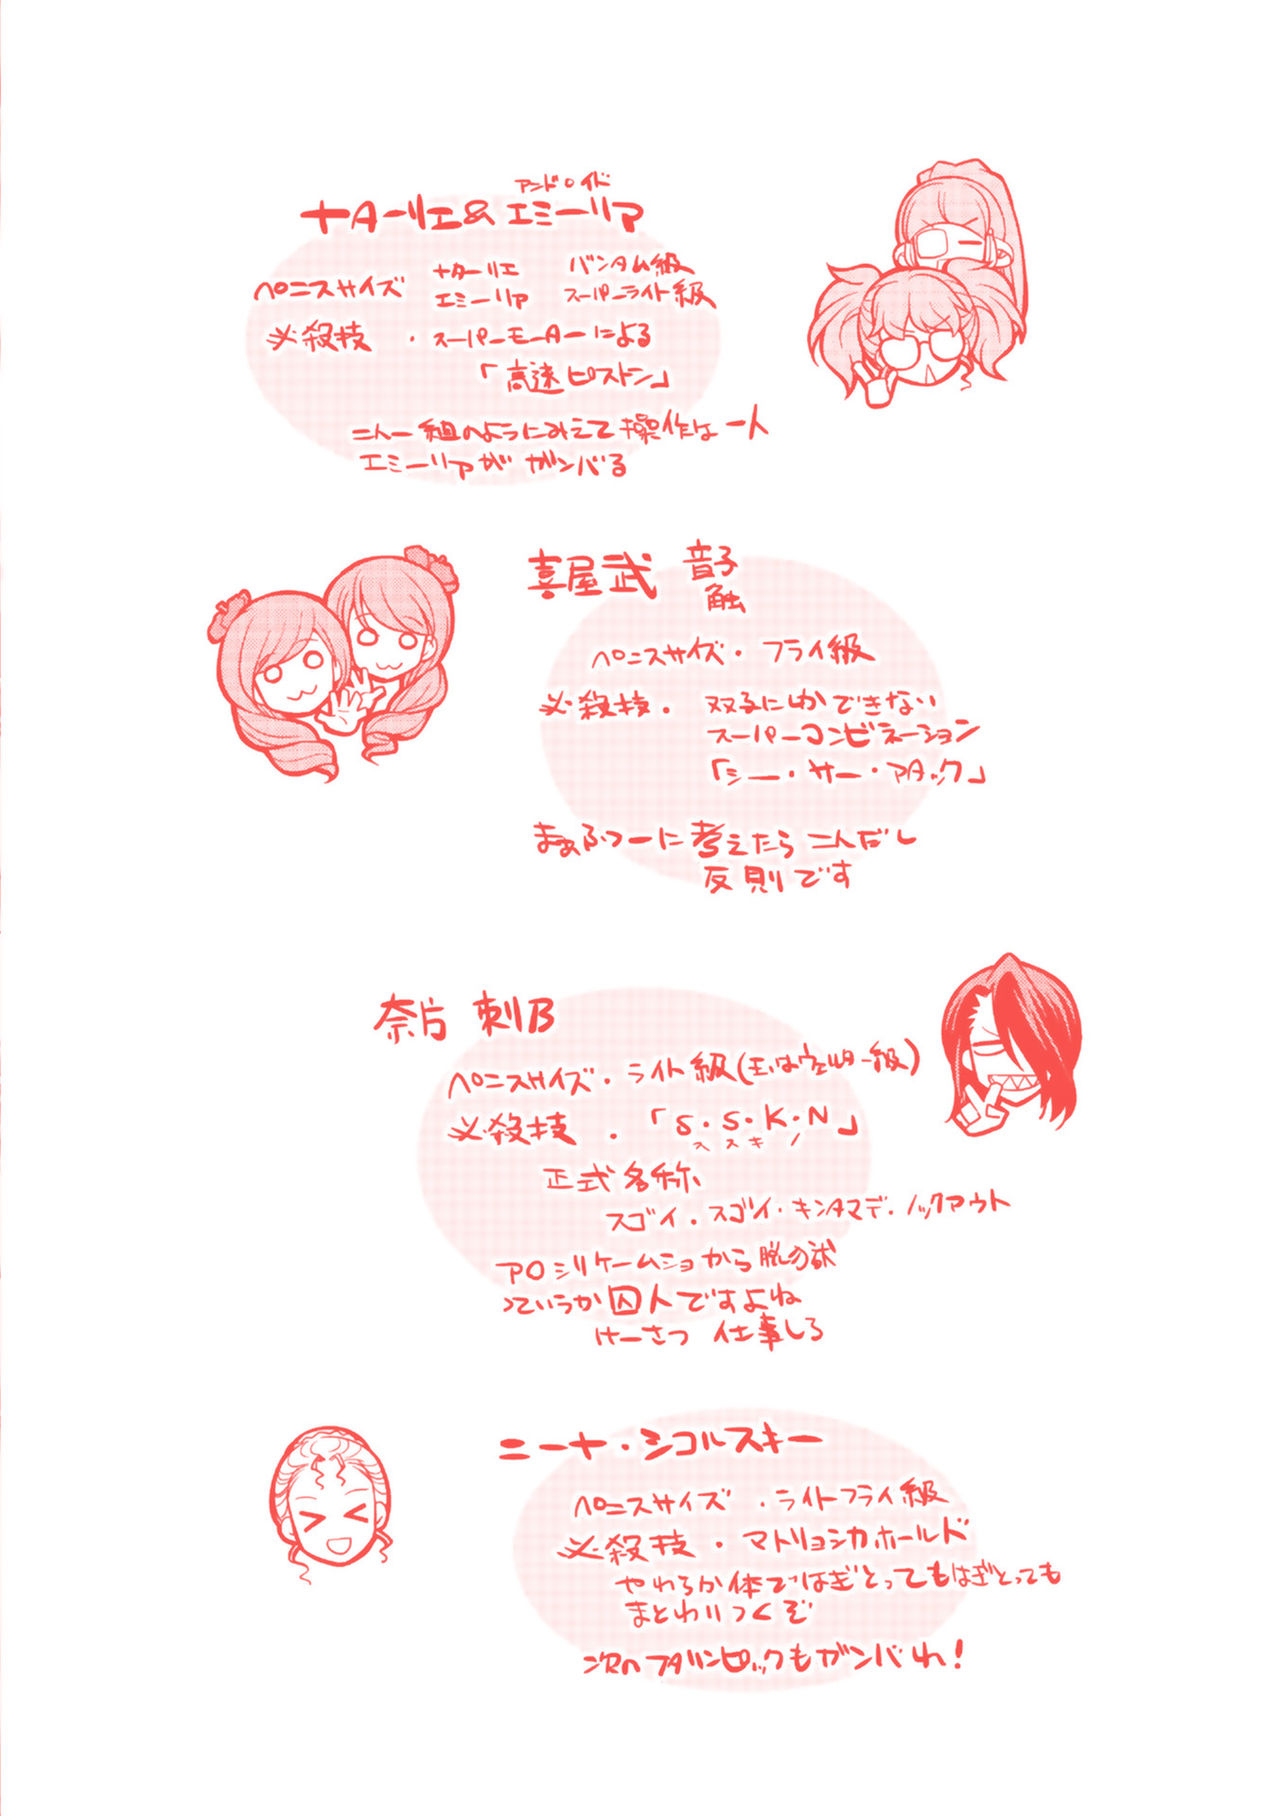 アンドロイド
ナターリエ&エミーリア
ペニスサイズ ナターリエ バンタム級
エミーリア スーパーライト級
必殺技 ・スーパーモーターによる
「高速ピストン」
二人一組のようにみえて操作は一人
エミーリアががンバる
喜屋武 音子
触
ペニスサイズ・フライ級
必殺技・双子にしかできない
スーパーコンビネーション
「シー・サー・アタック」
まぁふつーに考えたら二人だし
反則です
奈片 刺B
ペニスサイズ・ライト級(玉はウェルター級)
必殺技 ・「S・S・K・N」
ススキノ
正式名称
スゴイ・スゴイ・キンタマデ・ノックアウト
アOシリケームショから脱の獄
っていうか囚人ですよね
けーさつ 仕事しろ
ニーナ・シコルスキー
ペニスサイズ ・ライトフライ級
必殺技・マトリョシカホールド
やわらか体ではぎとってもはぎとっても
まとわりつくぞ
次のフタリンピックもガンバれ!